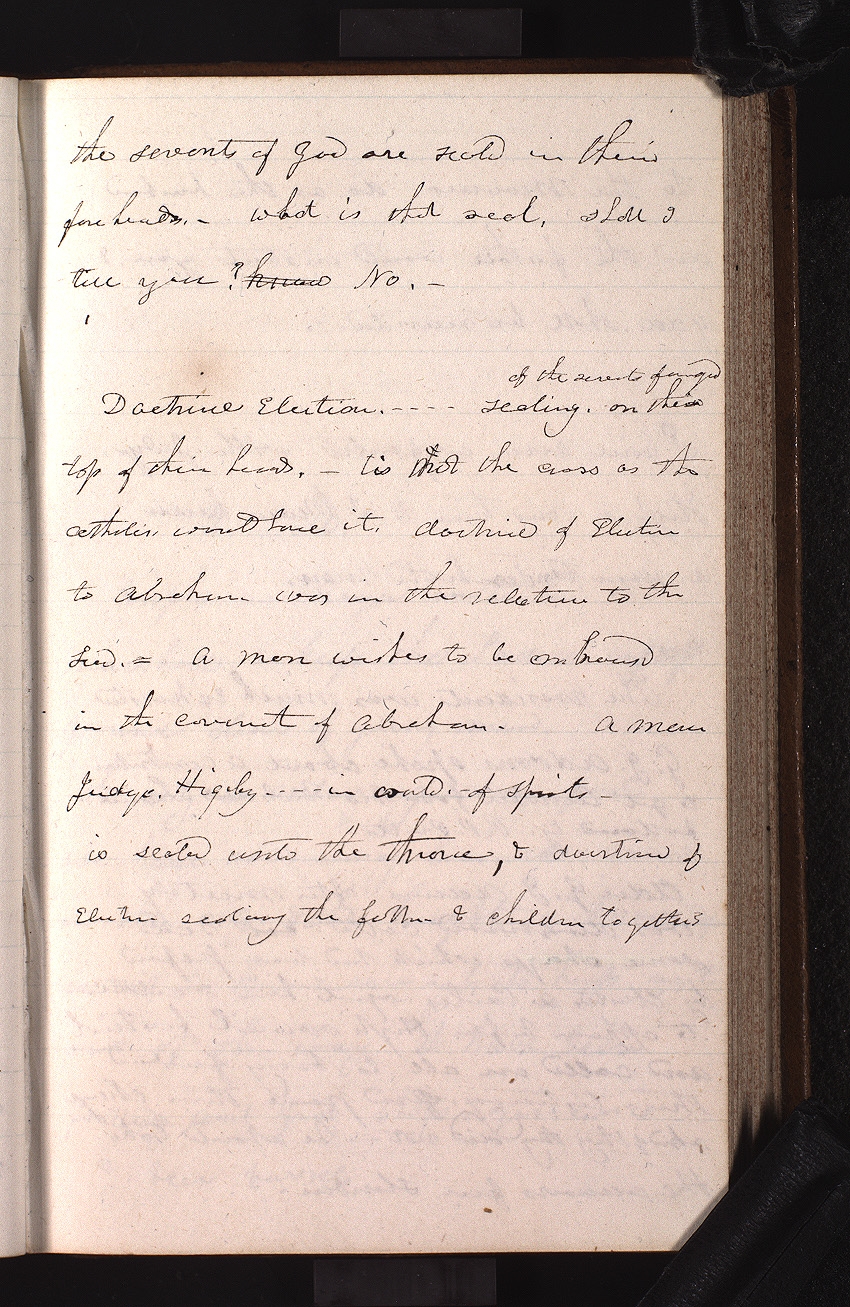 the servants of God are seald in their
foreheads. - what is that seal, shall I
tell you? know No. -
Doctrine Election. - - - - sealing. of the servants of our god on their
top of their heads. - tis not the cross as the
catholics would have it. doctrine of Election
to Abraham was in the relation to the
seed. = A man wishes to be embraced
in the covenant of Abraham. A man
Judge. Higby - - - - in world. - of spirits -
is sealed unto the throne, & doctrine of
Election sealing the father & children together